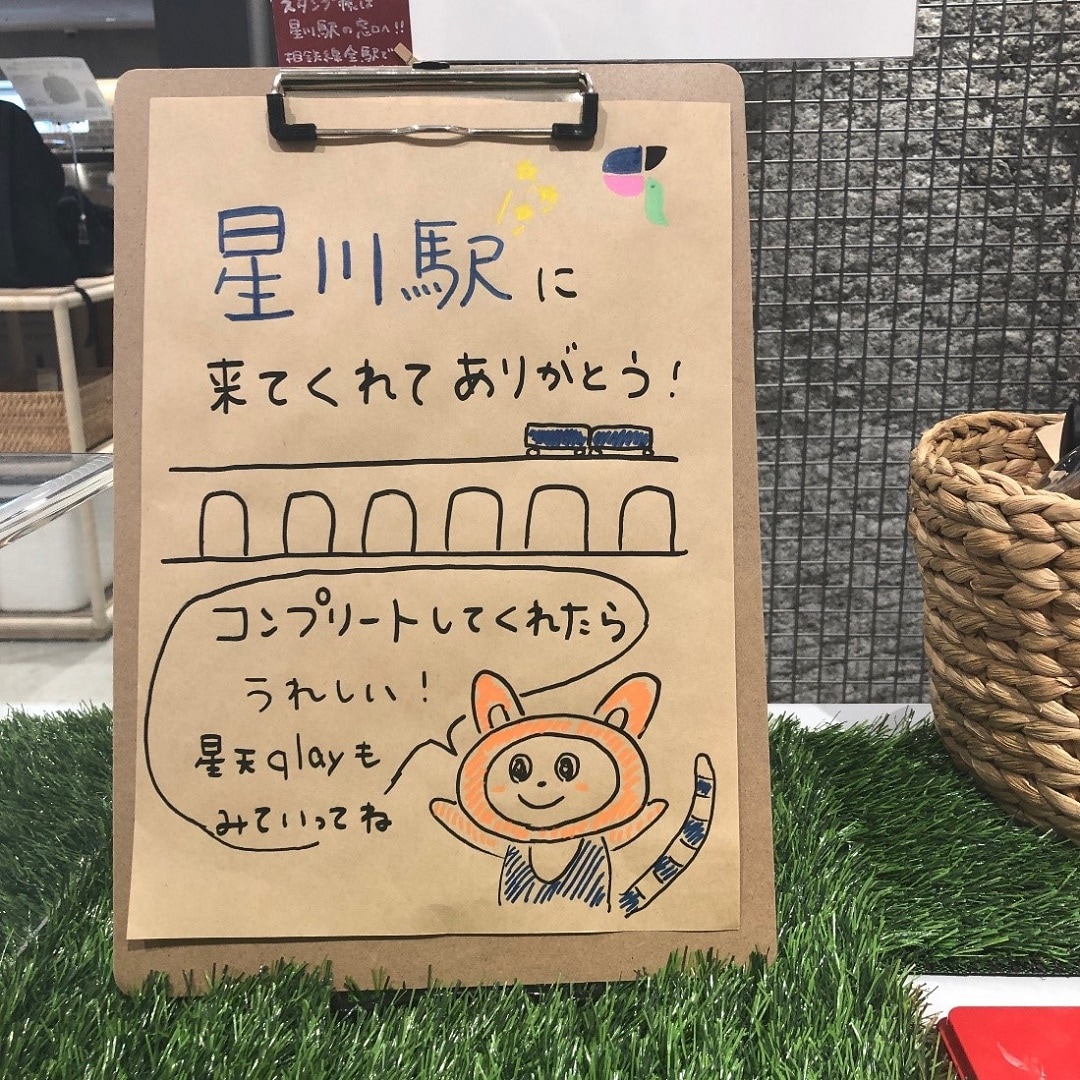 スタンプ様は
星川駅の窓口へ!!
相鉄線全駅で
星川駅に
来てくれてありがとう!
コンプリートしてくれたら
うれしい!
星天qlayも
みていってね